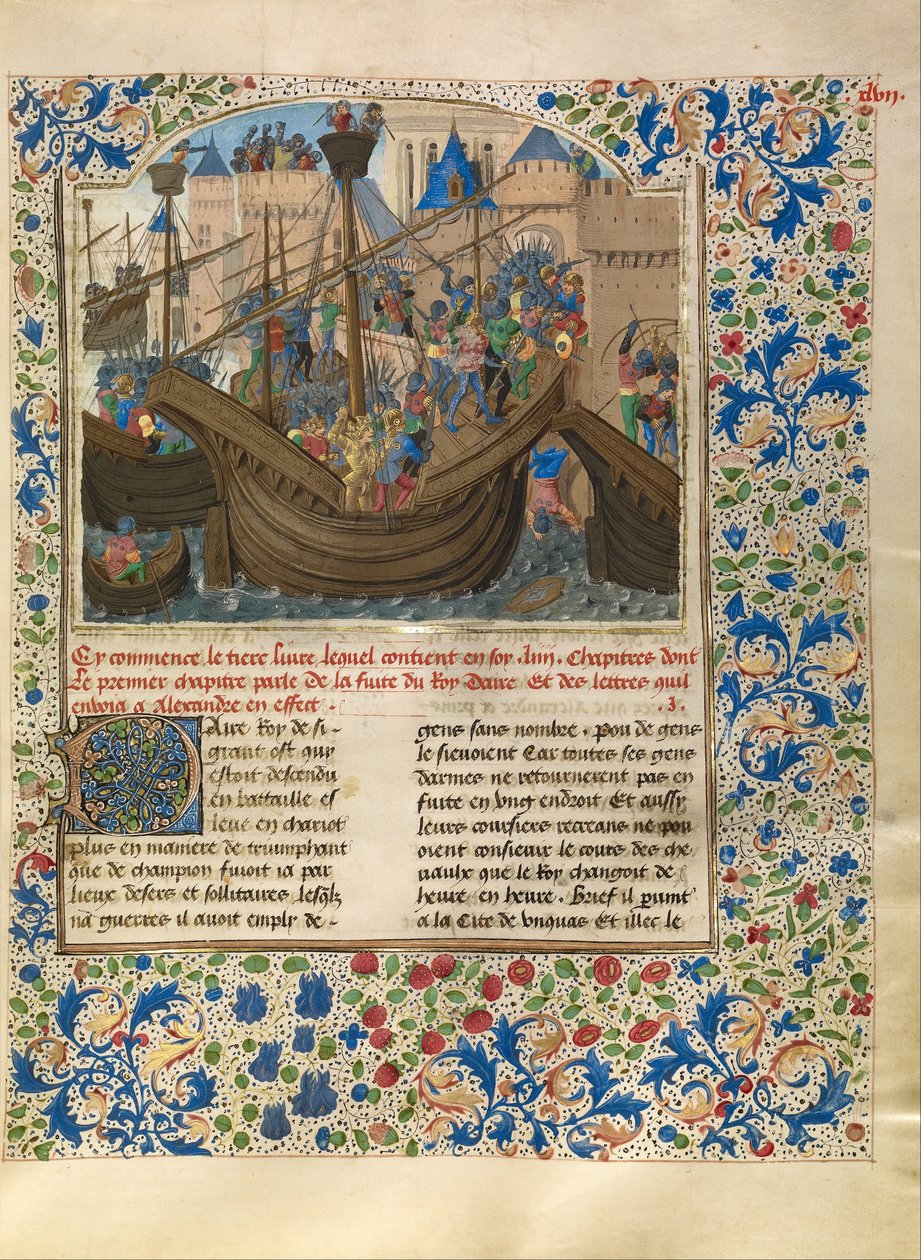 .xlvii.
Cy commence le tierc liure lequel contient en soy .liiii. Chapitres dont
Le premier chapitre parle De la fuite du Roy Daire Et des lettres quil
enuoia a Alexandre en effect .
.I.
Daire Roy de si
grant ost quy
estoit descendu
en battaille es
leue en chariot
plus en maniere de triumphant
que de champion fuioit ia par
lieux desers et sollitaires lesqlz
na guerres il auoit emply de
gens sans nombre . Pou de gens
le sieuoient Car toutes ses gens
darmes ne retournerent pas en
fuite en vng endroit Et aussy
leurs coursiers recreans ne pou
oient consieuir le cours des che
uaulx que le Roy changoit de
heure en heure . Brief il puint
a la Cite de vnquas Et illec le